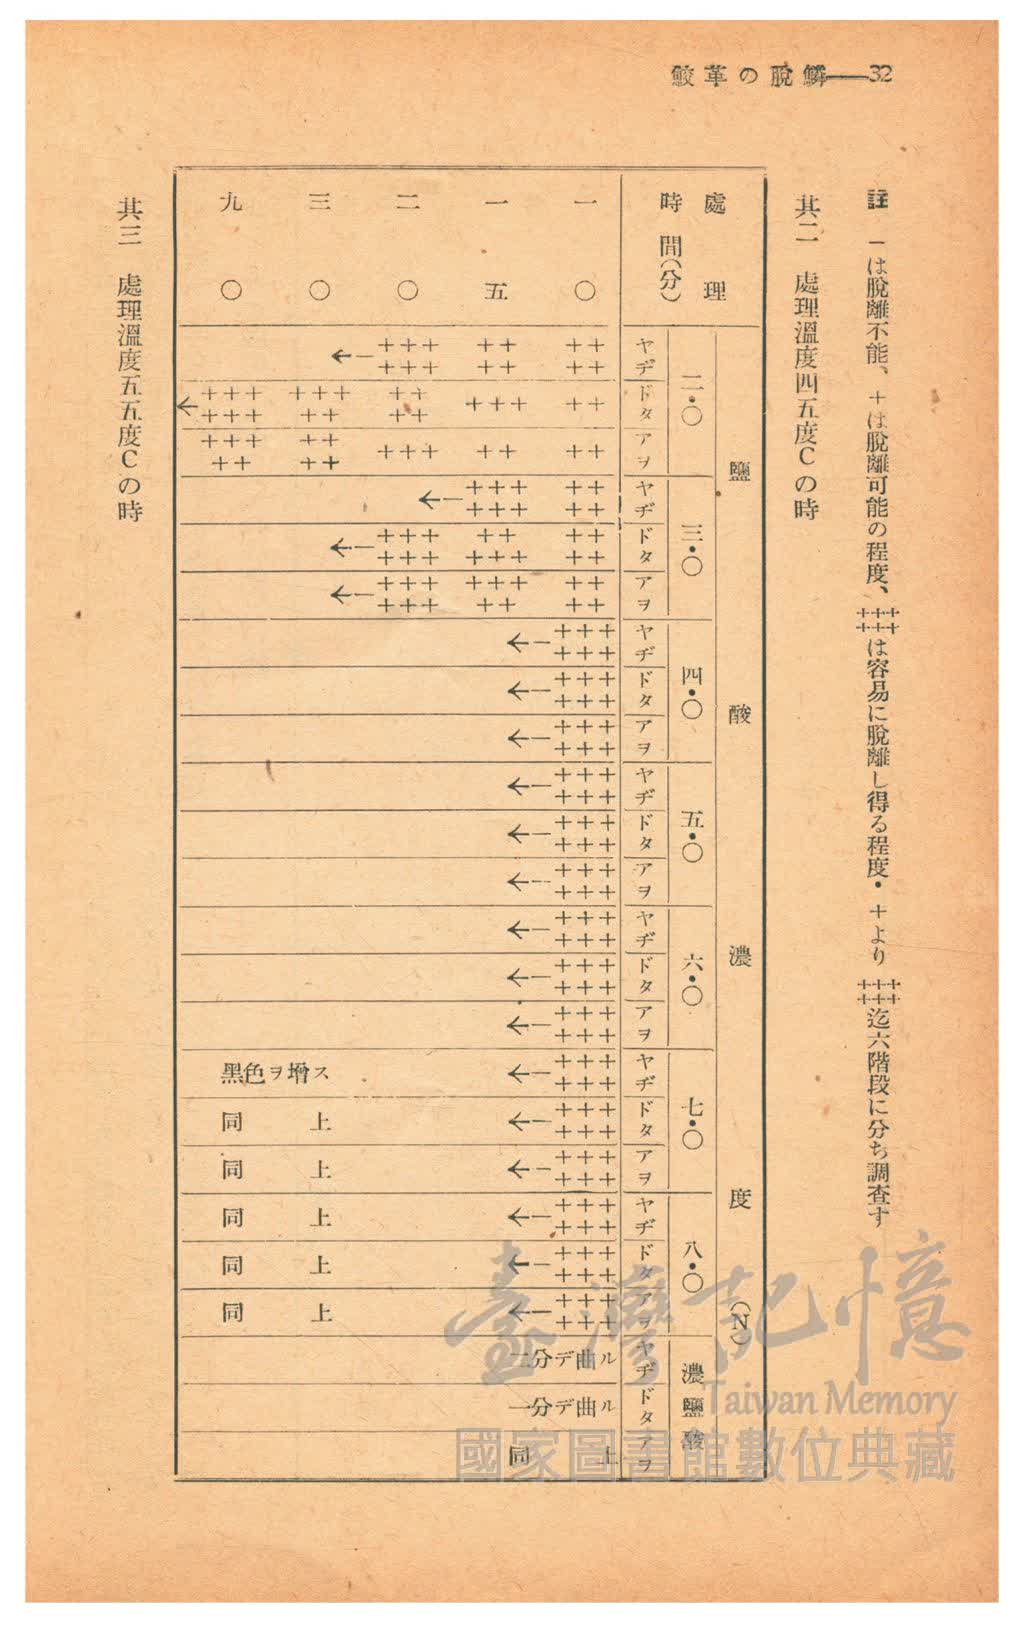 鮫革の脫鱗――32
註 −は脫離不能、+は脫離可能の程度、++++++は容易に脫離し得る程度・+より++++++迄六階段に分ち調査す
其二 處理溫度四五度Cの時
處理
時間(分)
鹽酸濃度(N)
二・〇 三・〇 四・〇 五・〇 六・〇 七・〇 八・〇 濃鹽酸
ヤヂ ドタ アヲ ヤヂ ドタ アヲ ヤヂ ドタ アヲ ヤヂ ドタ アヲ ヤヂ ドタ アヲ ヤヂ ドタ アヲ ヤヂ ドタ アヲ ヤヂ ドタ アヲ
一〇 ++++ ++ ++ ++++ ++++ ++++ ++++++ ++++++ ++++++ ++++++ ++++++ ++++++ ++++++ ++++++ ++++++ ++++++ ++++++ ++++++ ++++++ ++++++ ++++++ 二分デ曲ル 一分デ曲ル 同上
一五 ++++ +++ ++ ++++++ +++++ +++++ ← ← ← ← ← ← ← ← ← ← ← ← ← ← ←
二〇 ++++++ ++++ +++ ← ++++++ ++++++
三〇 ← +++++ ++++ ← ←
九〇 ++++++ ← +++++
黑色ヲ增ス
同上
同上
同上
同上
同上
其三 處理溫度五五度Cの時
臺灣記憶
Taiwan Memory
國家圖書館數位典藏